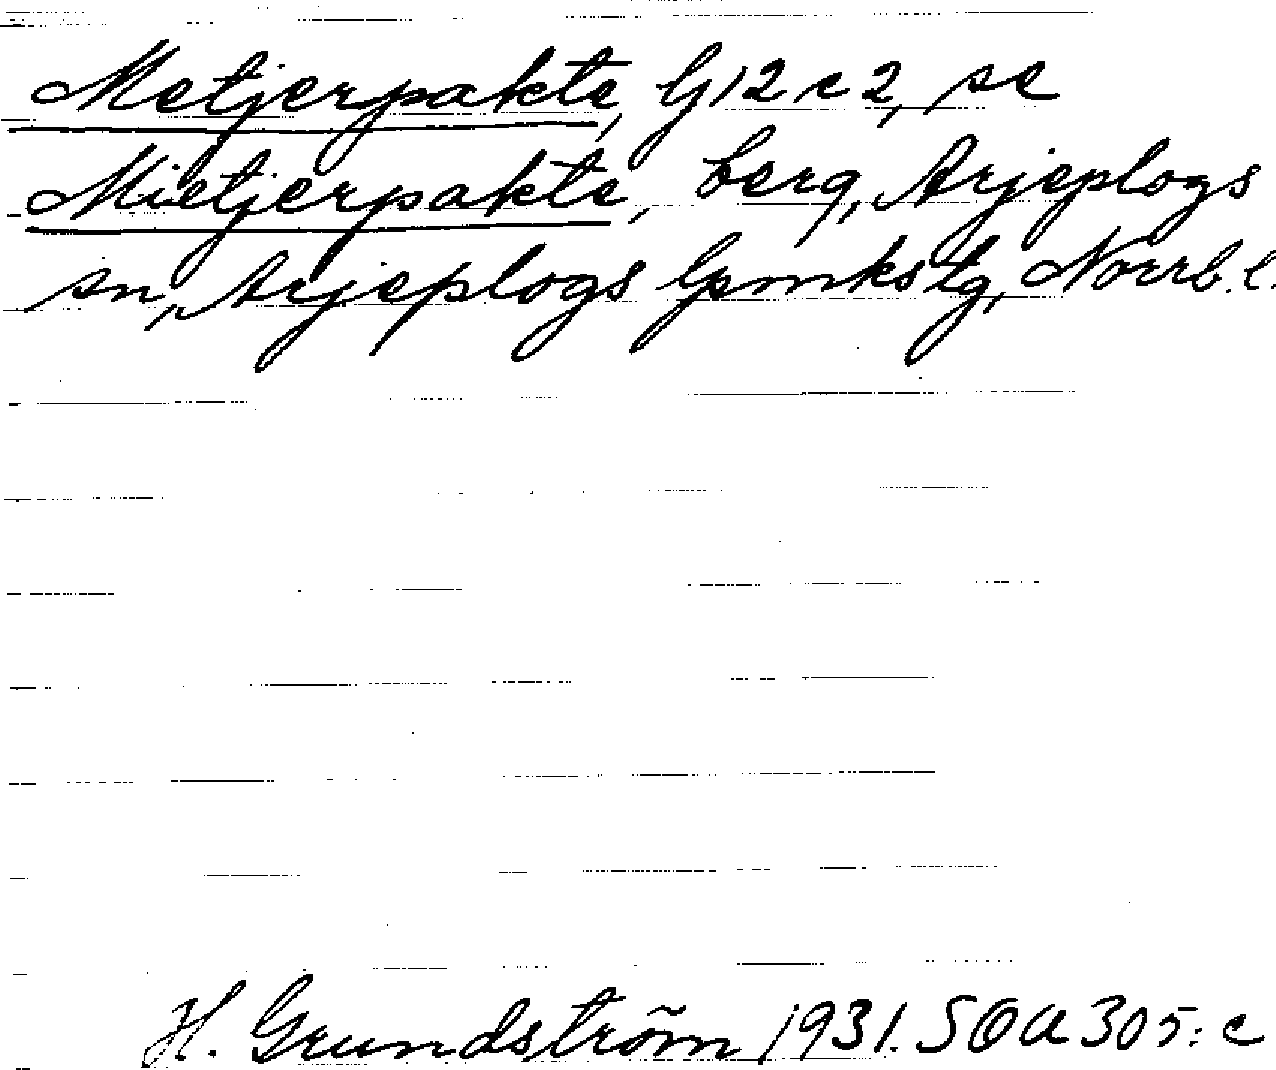 Metjerpakte, G12 c 2, se
Mietjerpakte, berg, Arjeplogs
sn, Arjeplogs lpmkstg, Norrb. l.
H. Grundström 1931. SOA 305: c